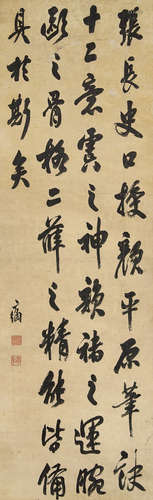 張長史口授顏平原筆訣
十二意虞之神韻褚之運腕
歐之骨格二薛之精能皆備
具於斯矣